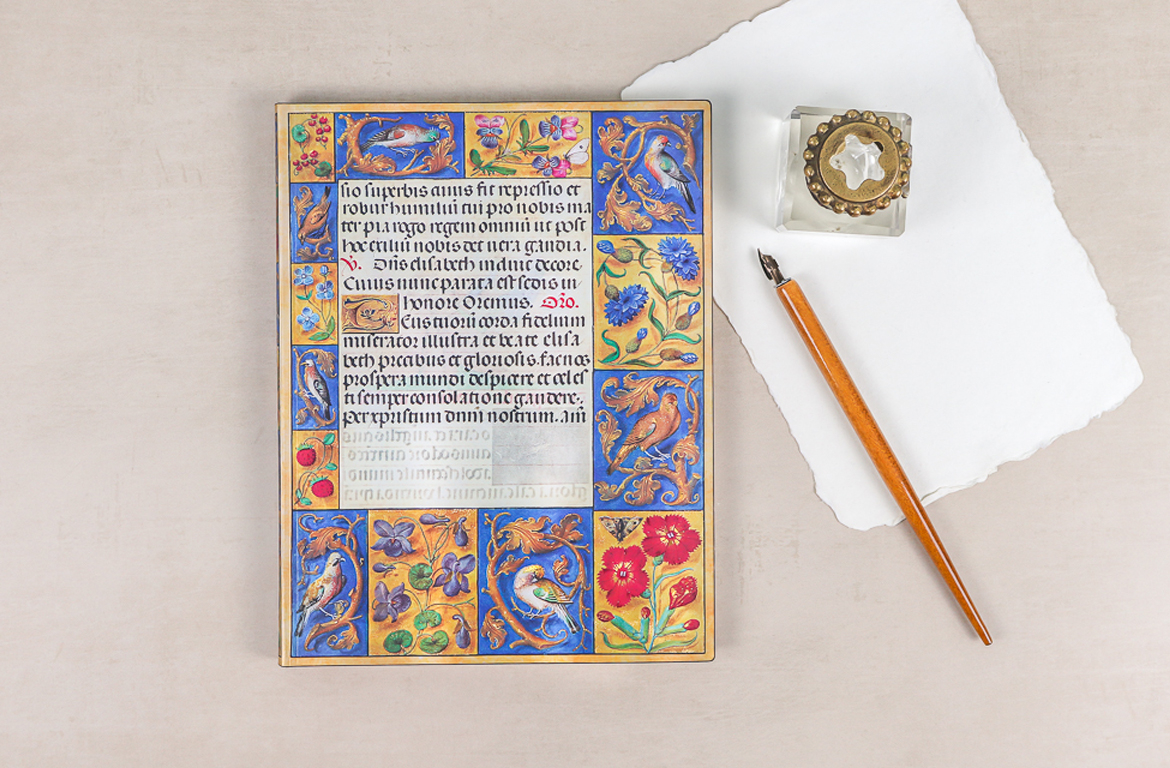 sio superbis fit repressio et
robur humiliū tui pro nobis ma
ter pia rogo regem omniū ut post
hoc exiliū nobis det uera gaudia.
V. Dn̄s elisabeth induit decore
Cuius nunc parata est sedis in
honore Oremus. Oro.
Eus tuorū corda fidelium
miserator illustra et beate elisa
beth precibus et gloriosis. fac nos
prospera mundi despicere et celes
ti semper consolatione gaudere.
Per xpristum dnm̄ nostrum. Am